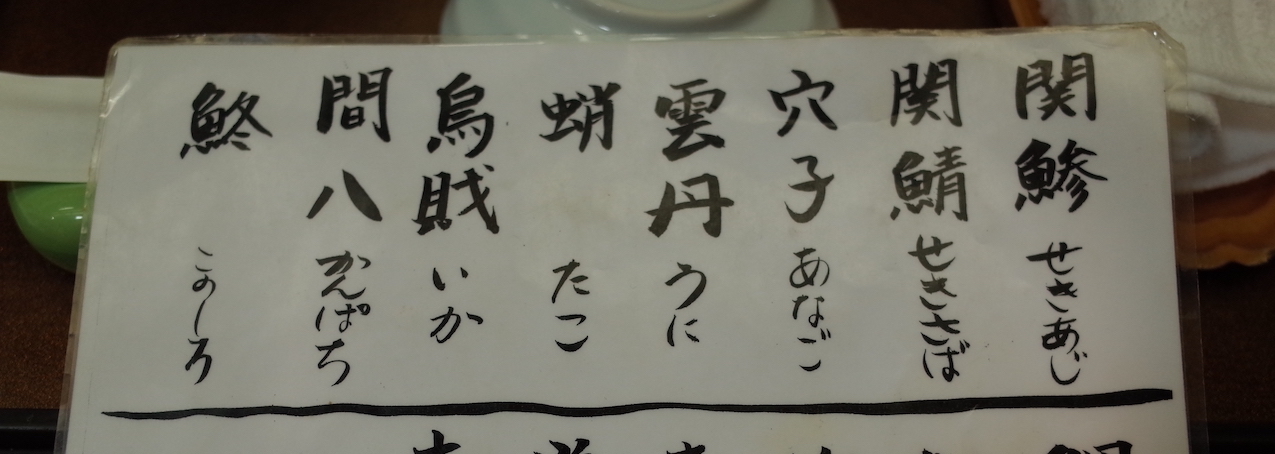 関鯵 せきあじ
関鯖 せきさば
穴子 あなご
雲丹 うに
蛸 たこ
烏賊 いか
間八 かんぱち
鮗 このしろ